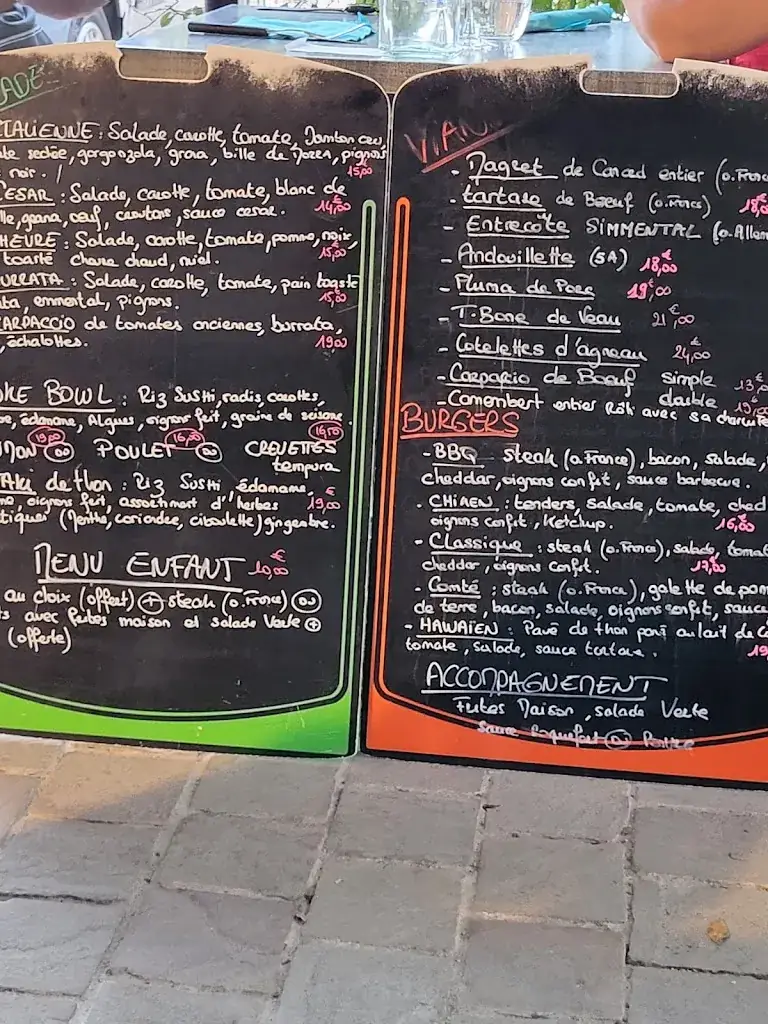 ADE
TALIENNE : Salade, carotte, tomate, Jambon cru,
te sechée, gorgonzola, grana, bille de Mozza, pignons
noir. 15,00
CESAR : Salade, carotte, tomate, blanc de
lle, grana, oeuf, croutons, sauce cesar. 14,00€
HEVRE : Salade, carotte, tomate, pomme, noix,
toasté chèvre chaud, miel. 15,00€
URRATA : Salade, carotte, tomate, pain toasté
ta, emmental, pignons. 15,00€
CARPACCIO de tomates anciennes, burrata,
, échalottes. 19,00
OKE BOWL : Riz Sushi, radis, carottes,
édamame, Algues, oignons frit, graine de sésame
MON 19,00 ou POULET 16,00 ou CREVETTES 16,50
tempura
TAKI de thon : Riz Sushi édamame,
oignons frit, assortiment d'herbes 19,00€
tiques (Menthe, coriandre, ciboulette) gingembre.
MENU ENFANT 10,00€
au choix (offert) + steak (o.France) ou
s avec frites maison et salade Verte +
(offerte)
VIAN
- Magret de Canard entier (o.France
- tartare de Boeuf (o.France) 18,0
- Entrecôte SIMMENTAL (o.Allem
- Andouillette (5A) 18,00€
- Pluma de Porc 19,00€
- T-Bone de Veau 21,00€
- Cotelettes d'agneau 24,00€
- Carpaccio de Boeuf simple 13,0
double 19,0
- Camembert entier Rôti avec sa charcute
BURGERS
- BBQ steak (o.France), bacon, salade,
cheddar, oignons confit, sauce barbecue.
- CHIKEN : tenders, salade, tomate, ched
oignons confit, Ketchup. 16,00€
- Classique : steak (o.France), salade, tomat
cheddar, oignons confit. 17,00€
- Comté : steak (o.France), galette de pom
de terre, bacon, salade, oignons confit, sauce
- HAWAÏEN : Pavé de thon pané au lait de Co
tomate, salade, sauce tartare. 19,
ACCOMPAGNEMENT
Frites Maison, salade Verte
Sauce Roquefort ou Poivre